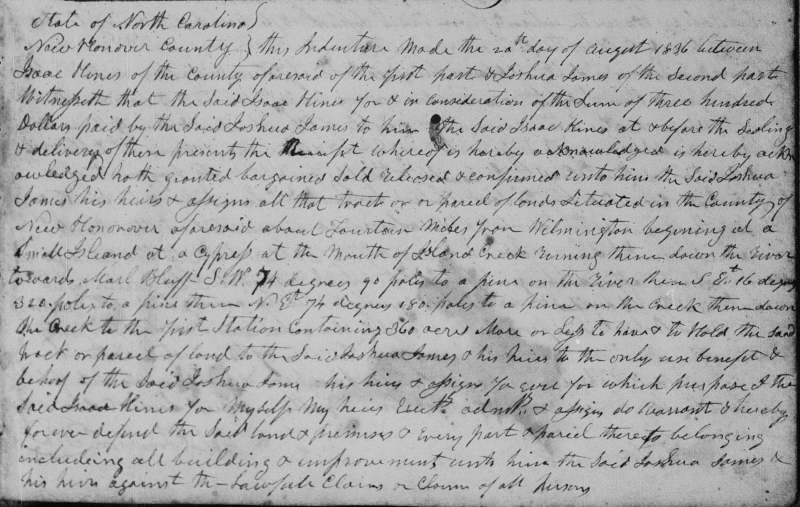 State of North Carolina }
New Hanover County } this Indenture Made the 20th day of August 1836 between
Isaac Hines of the County aforesaid of the first part & Joshua James of the Second part
Witnesseth that the Said Isaac Hines for & in consideration of the Sum of three hundred
Dollars paid by the Said Joshua James to him the Said Isaac Hines at & before the Sealing
& delivery of these presents the Receipt whereof is hereby acknowledged is hereby ackn
owledged hath granted bargained Sold Released & confirmed unto him the Said Joshua
James his heirs & assigns all that tract or or parcel of lands Situated in the County of
New Honover aforesaid about fourtain Miles from Wilmington begining at a
Small Island at a Cypress at the Mouth of Island Creek Runing then down the River
towards Marl Bluff S. W. 74 degrees 90 poles to a pine on the River then S Et 16 degrees
320 poles to a pine then N. Et 74 degrees 180 poles to a pine on the Creek then down
the Creek to the first Station Containing 360 acres More or Less to have & to Hold the Said
tract or parcel of land to the Said Joshua James & his heirs to the only use benefit &
behoof of the Said Joshua Jame his heirs & assigns for ever for which purpose I the
Said Isaac Hines for Myself My heirs Exectrs admrs & assigns do Warrant & hereby
forever defend the Said land & premises & Every part & parcel thereto belonging
includeing all building & improvement unto him the Said Joshua James &
his heirs against the Lawfull Claims or Claim of all persons